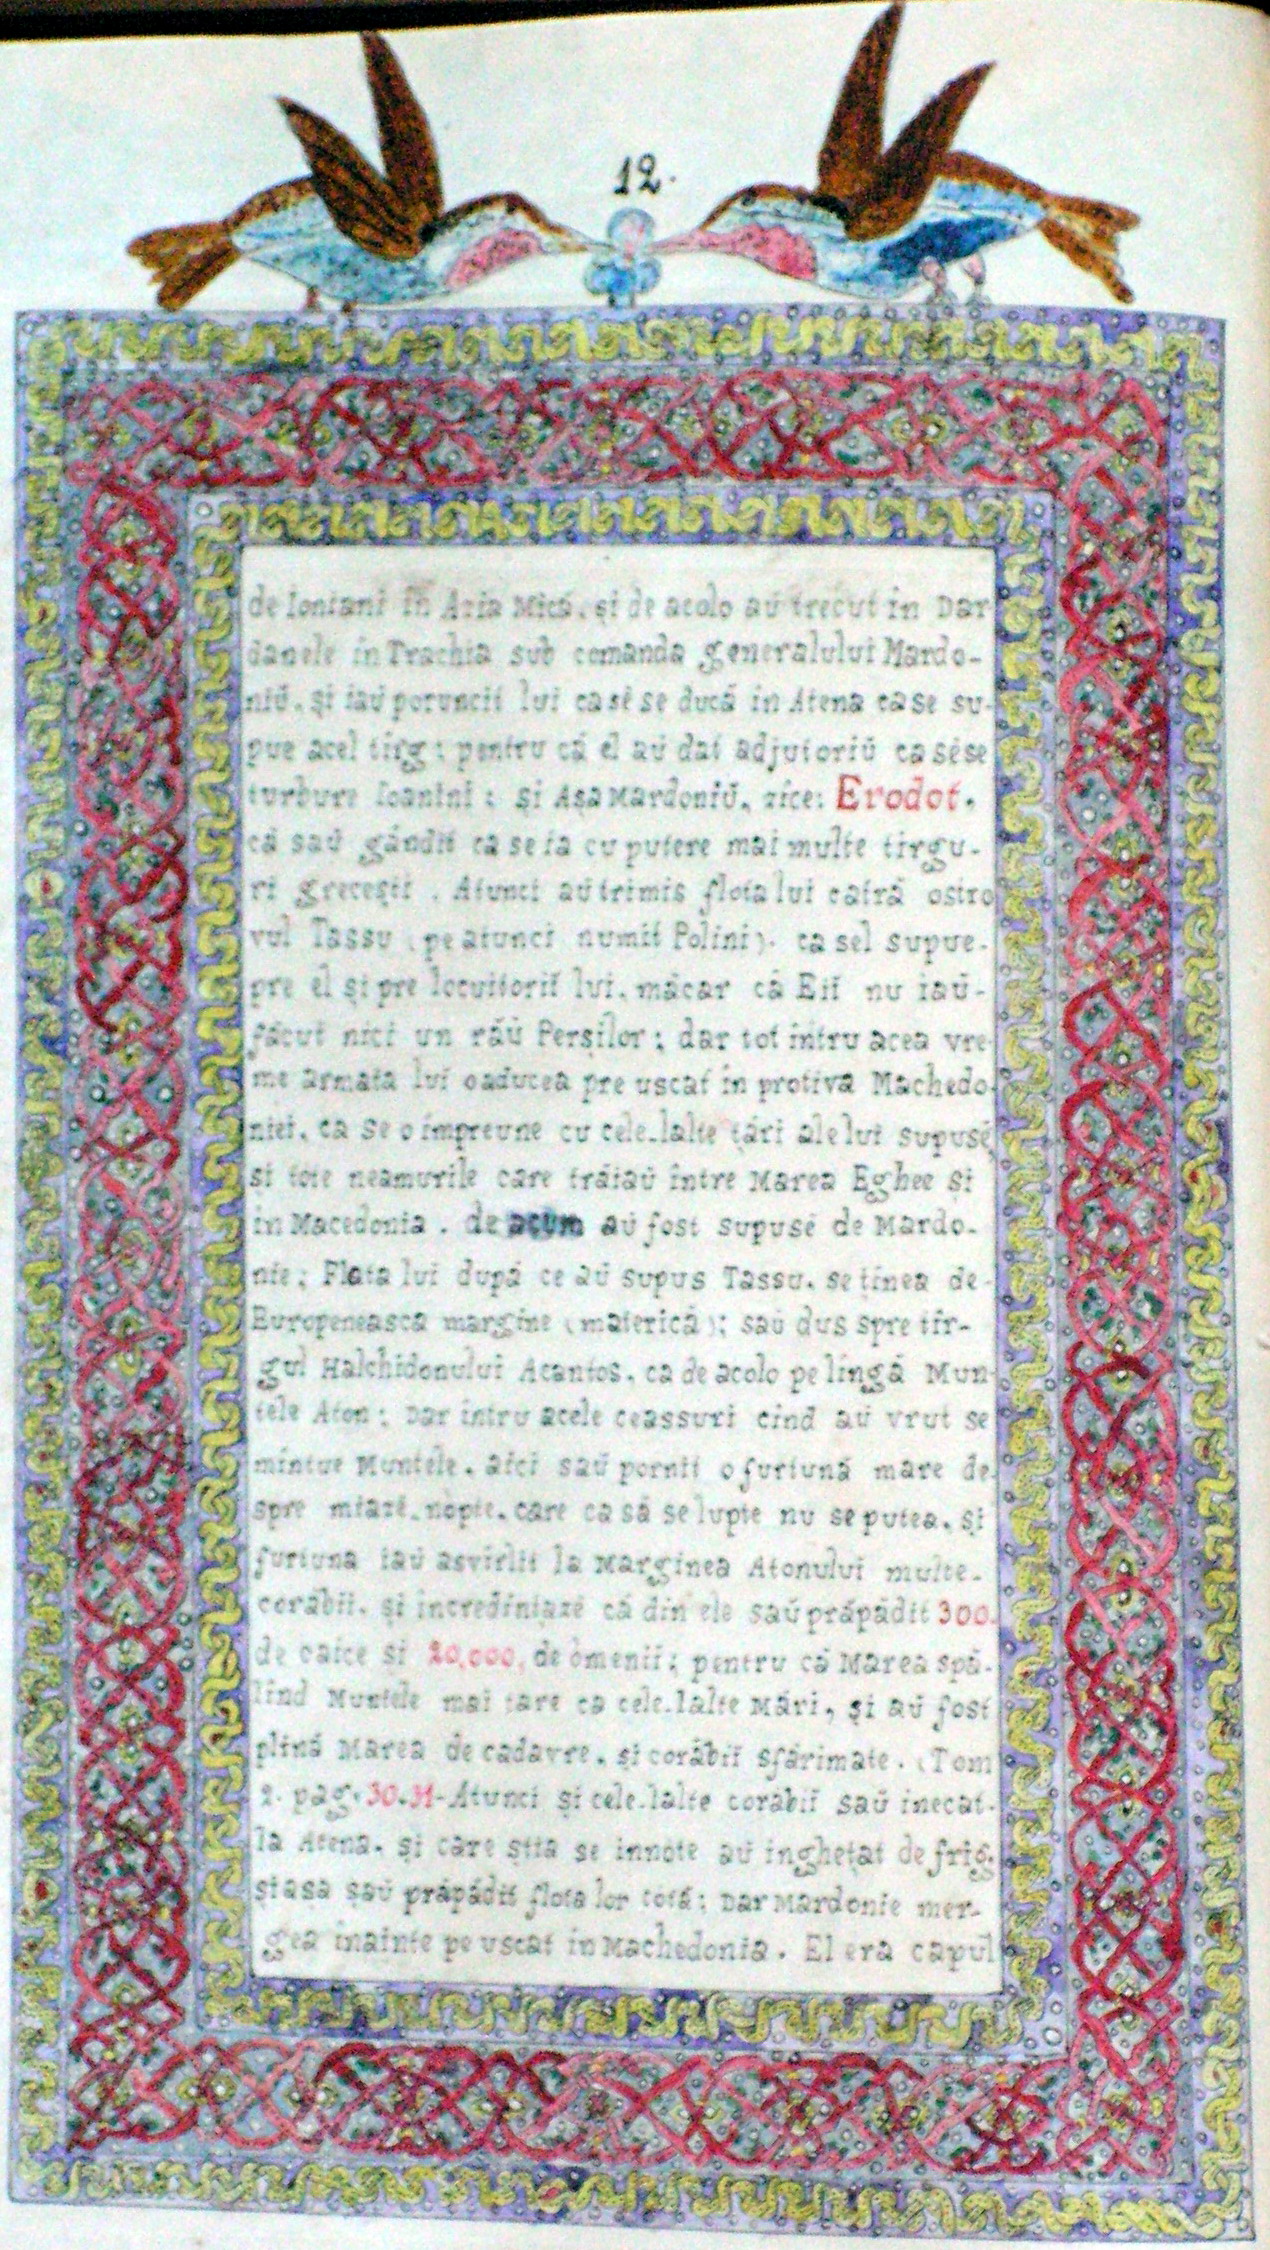 12.
de Ioniani in Azia Mică, și de acolo aŭ trecut in Dar
danele in Trachia sub comanda generalului Mardo-
niŭ, și iaŭ poruncit lui ca sĕ se ducă in Atena ca se su-
pue acel tirg; pentru că el aŭ dat adjutoriŭ ca sĕ se
turbure Ioanini; și Așa Mardoniŭ, zice: Erodot.
că saŭ găndit ca se ia cu putere mai multe tirgu-
ri grecești. Atunci aŭ trimis flota lui catră ostro
vul Tassu (pe atunci numit Polini). ca sel supue-
pre el și pre locuitorii lui, măcar că Eii nu iaŭ-
făcut nici un răŭ Perșilor; dar tot intru acea vre-
me armata lui o aducea pre uscat in protiva Machedo-
niei, ca se o impreune cu cele-lalte țări ale lui supusĕ
și tote neamurile care trăiaŭ intre Marea Eghee și
in Macedonia. de acum aŭ fost supusĕ de Mardo-
nie; Flota lui după ce aŭ supus Tassu, se ținea de-
Europeneasca margine (materică); saŭ dus spre tir-
gul Halchidonului Acantos, ca de acolo pe lingă Mun-
tele Aton; Dar intru acele ceassuri cind aŭ vrut se
mintue Muntele, aici saŭ pornit o furtună mare de-
spre miazĕ-nopte, care ca să se lupte nu se putea, și
furtuna iaŭ asvirlit la Marginea Atonului multe-
corăbii, și incredințazĕ că din ele saŭ prăpădit 300.
de caice si 20,000, de omenii; pentru că Marea spă-
lind Muntele mai tare ca cele-lalte Mări, și aŭ fost
plină Marea de cadavre, și corăbii sfărimate. (Tom
2. pag. 30.31-Atunci și cele-lalte corăbii saŭ inecat-
la Atena, și care știa se innote aŭ inghețat de frig,
șiasa saŭ prăpădit flota lor totă; Dar Mardonie mer-
gea inainte pe uscat in Machedonia. El era capul